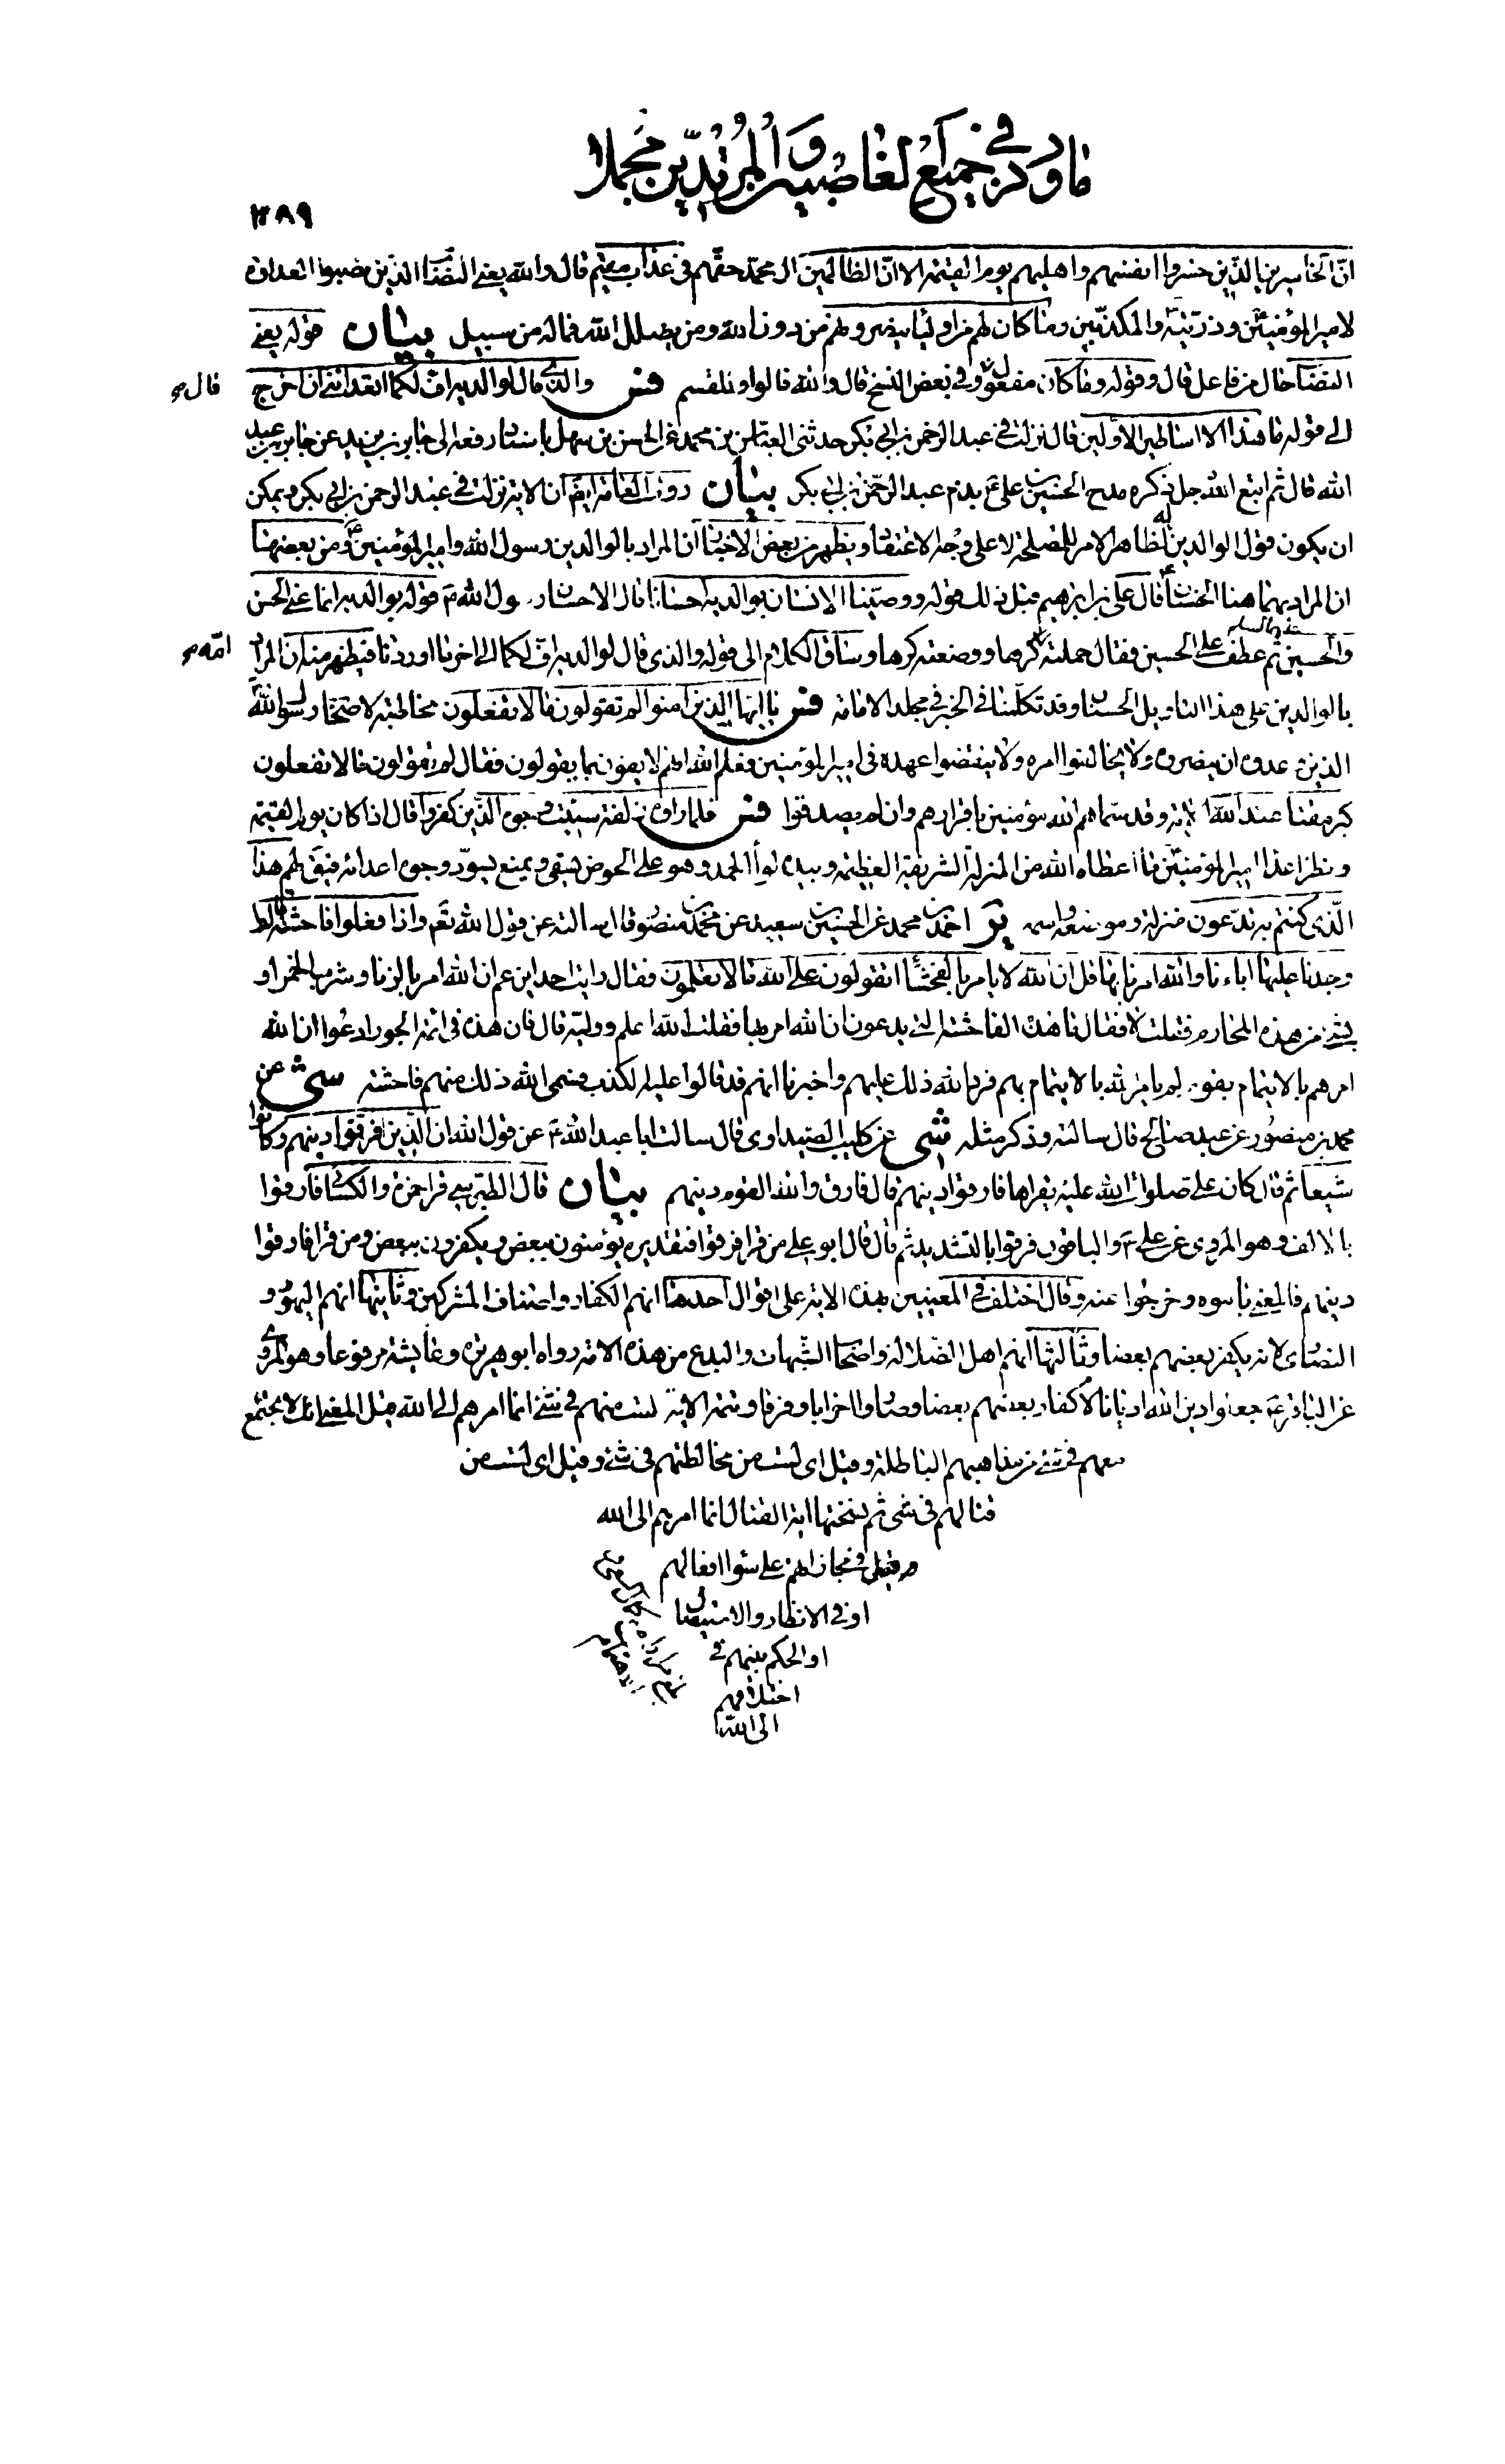 ما ورد في جميع الغاصبين و المرتدين مجملا
٣٨٩
انّ الخاسرين الذين خسروا انفسهم واهليهم يوم القيمة الا انّ الظالمين ال محمّد حقّهم في عذاب مقيم قال والله يعنے النصّاب الذين نصبوا العداوة
لامير المؤمنين و ذريّته والمكذّبين وما كان لهم من اولياء ينصرونهم من دون الله ومن يضلل الله فماله من سبيل بيان قوله يعنے
النصّاب حال من فاعل قال وقوله وما كان مفعول وفي بعض النسخ قال والله قالوا فس والذي قال لوالديه افّ لكما اتعدانني ان اخرج
قال
الى قوله ما هذا الا اساطير الاوّلين قال نزلت في عبد الرحمن بن ابي بكر حدثني العبّاس بن محمد عن الحسن بن سهل باسناد رفعه الى جابر بن يزيد عن جابر بن عبد
الله قال ثم اتبع الله جل ذكره مدح الحسين بن علي ع بذم عبد الرحمن بن ابي بكر بيان روت العامة ايضا ان الاية نزلت في عبد الرحمن بن ابي بكر و يمكن
ان يكون قول الوالدين له لظاهر الامر للمصلحة لا على وجه الاعتقاد و يظهر من بعض الاخبار ان المراد بالوالدين رسول الله وامير المؤمنين ع ومن بعضها
ان المراد بهما هنا الحسنان قال علي بن ابرهيم قبل ذلك قوله ووصّينا الانسان بوالديه احسانا قال الاحسان رسول الله ص قوله بوالديه انما عنى الحسن
والحسين عليهما السلام ثم عطف على الحسين فقال حملته امه كرها ووضعته كرها وساق الكلام الى قوله والذي قال لوالديه افّ لكما الى اخر ما اوردنا فيظهر منه ان المراد
امّه
بالوالدين على هذا التاويل الحسنان وقد تكلّمنا في الخبر في مجلد الامامة فس يا ايها الذين امنوا لم تقولون ما لا تفعلون مخاطبة لاصحاب رسول الله
الذين وعدوه ان ينصروه ولا يخالفوا امره ولا ينقضوا عهده في امير المؤمنين فعلم الله انهم لا يفون بما يقولون فقال لم تقولون ما لا تفعلون
كبر مقتا عند الله الاية وقد سمّاهم الله مؤمنين باقرارهم وان لم يصدقوا فس فلما راوه زلفة سيئت وجوه الذين كفروا قال اذا كان يوم القيمة
ونظر اعداء امير المؤمنين ما اعطاه الله من المنزلة الشريفة العظيمة وبيده لواء الحمد وهو على الحوض يسقي ويمنع يسودّ وجوه اعدائه فيق لهم هذا
الّذي كنتم به تدّعون منزلته وموضعه واسمه ير احمد بن محمد عن الحسين بن سعيد عن محمد بن منصور قال سالته عن قول الله تعه واذا فعلوا فاحشة قالوا
وجدنا عليها اباءنا والله امرنا بها قل ان الله لا يامر بالفحشاء اتقولون على الله ما لا تعلمون فقال رايت احدا يزعم ان الله امر بالزنا وشرب الخمر او
بشئ من هذه المحارم فقلت لا فقال فما هذه الفاحشة التي يدعون ان الله امر بها فقلت الله اعلم ووليّه قال فان هذه في ائمة الجور ادعوا ان الله
امرهم بالايتمام بقوم لم يامر الله بالايتمام بهم فرد الله ذلك عليهم واخبرنا انهم قد قالوا عليه الكذب فسمى الله ذلك منهم فاحشة شى عن
محمد بن منصور عن عبد صالح قال سالته وذكر مثله شى عن كليب الصيداوي قال سالت ابا عبد الله ع عن قول الله ان الّذين فرّقوا دينهم وكانوا
شيعا ثم قال كان علي صلوات الله عليه يقراها فارقوا دينهم قال فارق والله القوم دينهم بيان قال الطبرسي قرا حمزة والكسائي فارقوا
بالالف وهو المروي عن علي ع والباقون فرقوا بالتشديد ثم قال قال ابو علي من قرا فرقوا فتقديره يؤمنون ببعض ويكفرون ببعض ومن قرا فارقوا
دينهم فالمعنى باينوه وخرجوا عنه وقال اختلف في المعنيين بهذه الاية على اقوال احدها انهم الكفار واصناف المشركين وثانيها انهم اليهود و
النصارى لانه يكفر بعضهم بعضا وثالثها انهم اهل الضلالة واصحاب الشبهات والبدع من هذه الامة رواه ابو هريرة وعايشة مرفوعا وهو المروي
عن الباقر ع جعلوا دين الله اديانا لاكفار بعضهم بعضا وصاروا احزابا وفرقا وتتمة الاية لست منهم في شئ انما امرهم الى الله قيل المعنى انك لا تجتمع
معهم في شئ من مذاهبهم الباطلة وقيل اي لست من مخالطتهم في شئ وقيل اي لست من
قتالهم في شئ ثم نسختها اية القتال انما امرهم الى الله
قيل في مجازاتهم على سوء افعالهم
او في الانظار والاستيصال
او الحكم بينهم في
اختلافهم
الى الله